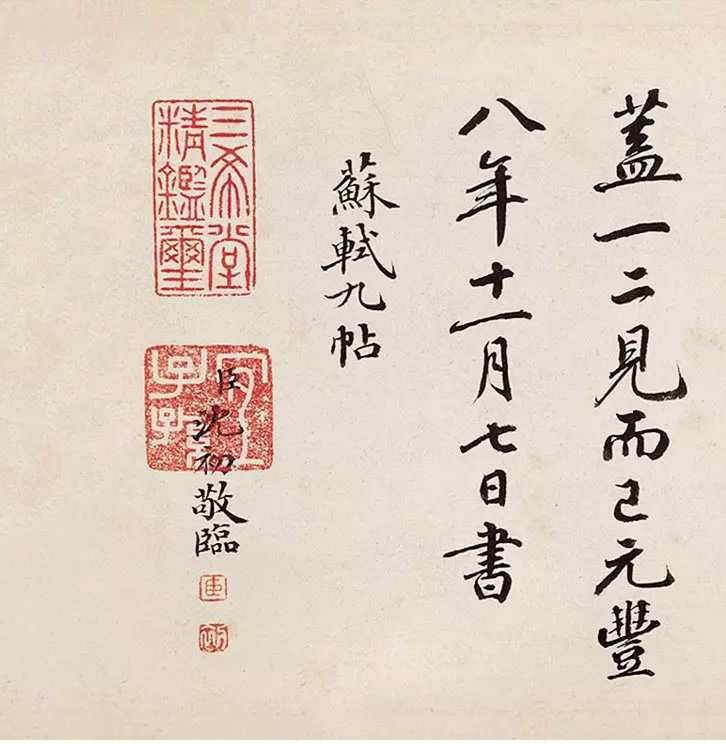 蓋一二見而已元豐
八年十一月七日書
蘇軾九帖
三希堂精鑑璽
宜子孫
臣沈初敬臨
臣
初